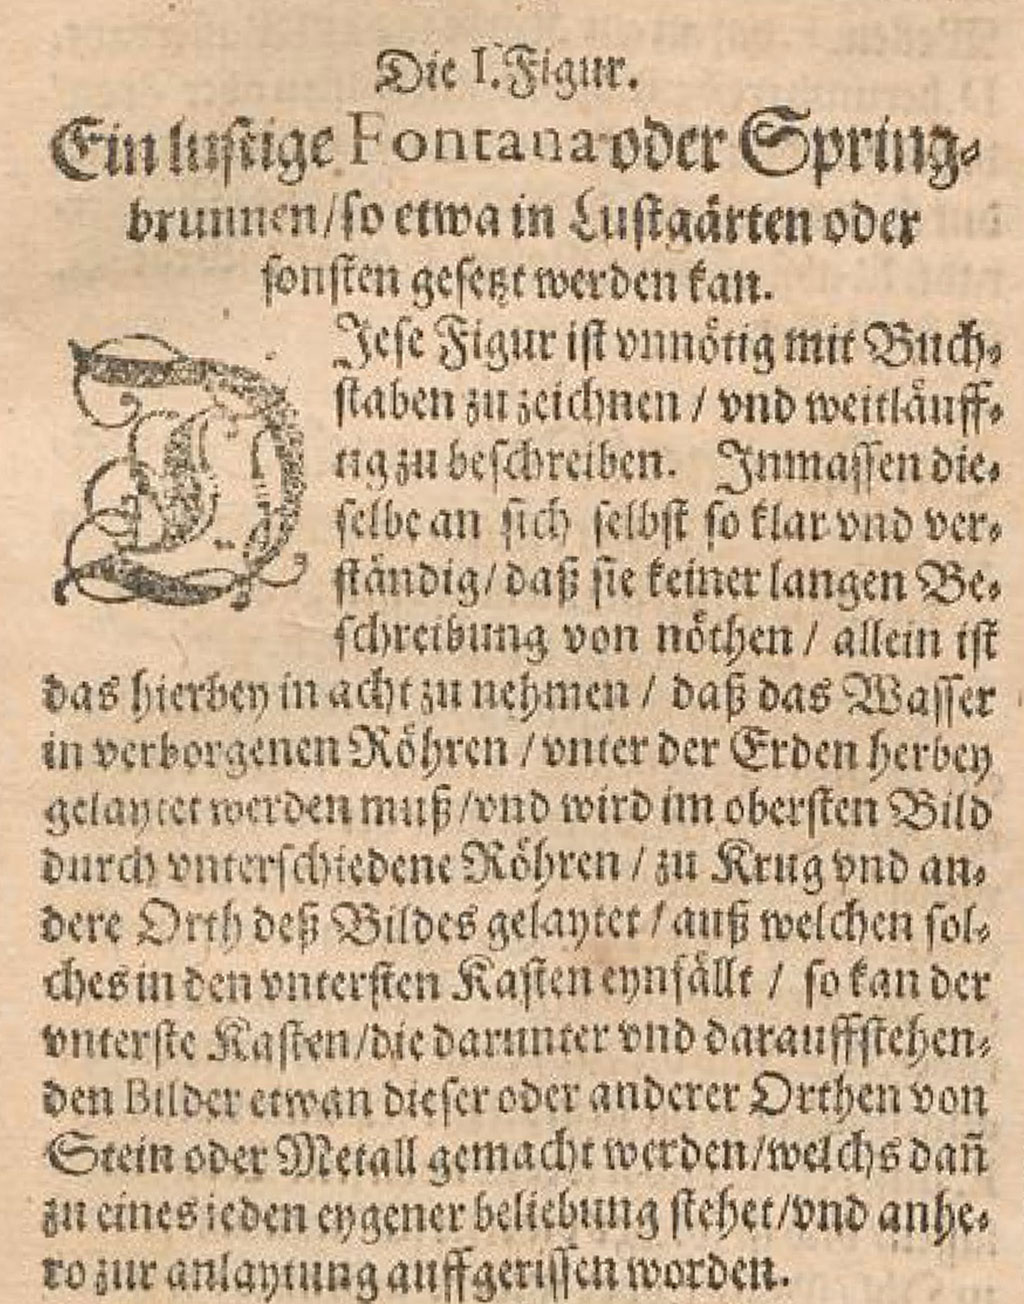 Die I. Figur.
Ein lustige Fontana oder Spring-
brunnen/so etwa in Lustgärten oder
sonsten gesetzt werden kan.
DJese Figur ist vnnötig mit Buch-
staben zu zeichnen / vnd weitläuff-
tig zu beschreiben. Jnmassen die-
selbe an sich selbst so klar vnd ver-
ständig/ daß sie keiner langen Be-
schreibung von nöthen / allein ist
das hierbey in acht zu nehmen / daß das Wasser
in verborgenen Röhren / vnter der Erden herbey
gelaytet werden muß/vnd wird im obersten Bild
durch vnterschiedene Röhren / zu Krug vnd an-
dere Orth deß Bildes gelaytet / auß welchen sol-
ches in den vntersten Kasten eynfällt / so kan der
vnterste Kasten/die darunter vnd darauffstehen-
den Bilder etwan dieser oder anderer Orthen von
Stein oder Metall gemacht werden/welchs dañ
zu eines ieden eygener beliebung stehet/vnd anhe-
ro zur anlaytung auffgerissen worden.